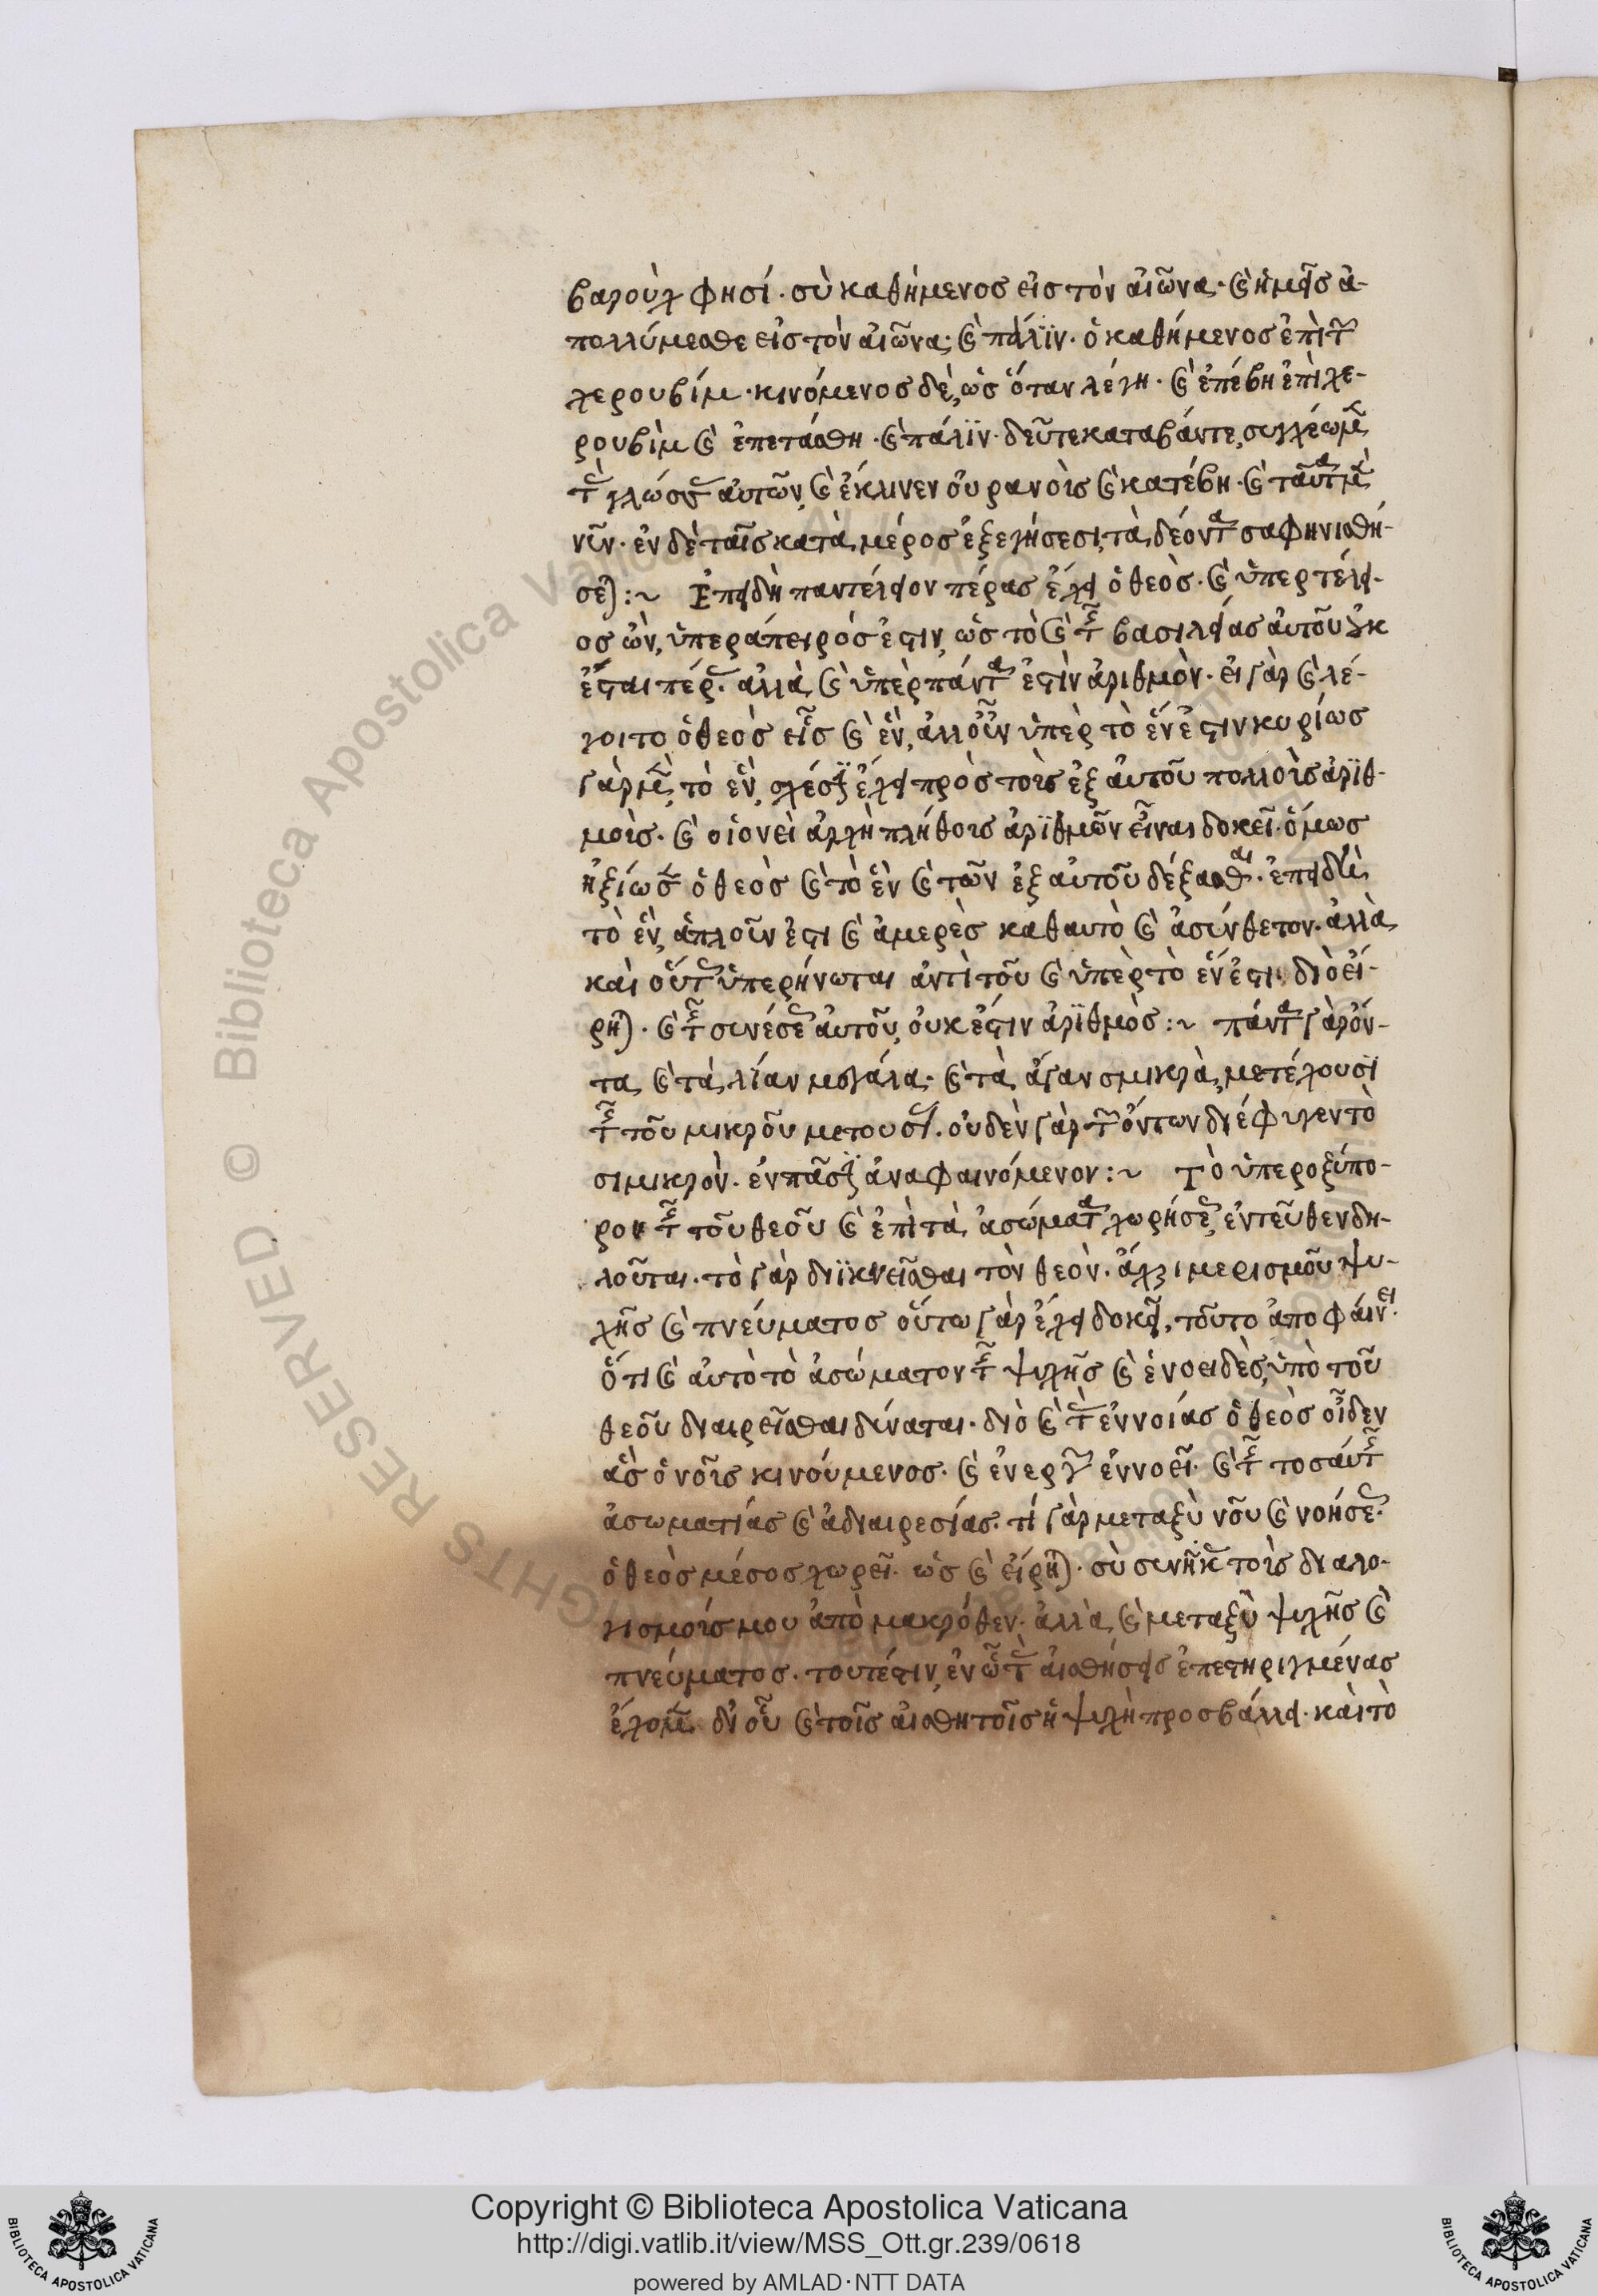 βαρούχ φησί· σὺ καθήμενος εἰς τὸν αἰῶνα· καὶ ἡμεῖς ἀ-
πολλύμεθα εἰς τὸν αἰῶνα· καὶ πάλϊν· ὁ καθήμενος ἐπὶ τῶν
χερουβίμ· κινόμενος δὲ, ὡς ὅταν λέγη· καὶ ἐπέβη ἐπὶ χε-
ρουβὶμ καὶ ἐπετάσθη· καὶ πάλϊν· δεῦτε καταβάντες, συγχέωμεν
τὰς γλώσσας αὐτῶν, καὶ ἔκλινεν οὐρανοὺς καὶ κατέβη· καὶ ταῦτα μὲν
νῦν· ἐν δὲ ταῖς κατὰ μέρος ἐξεγήσεσι, τὰ δέοντα σαφηνισθή-
σεται :~ Ἐπειδὴ παντέλειον πέρας ἔχει ὁ θεὸς· καὶ ὑπερτέλει-
ος ὢν, ὑπεράπειρός ἐστιν, ὡς τὸ καὶ τῆς βασιλείας αὐτοῦ οὐκ
ἔσται πέρας· ἀλλὰ καὶ ὑπὲρ πάντα ἐστὶν ἀριθμὸν· εἰ γὰρ καὶ λέ-
γοιτο ὁ θεὸς εἷς καὶ ἓν, ἀλλ' οὖν ὑπὲρ τὸ ἕν ἐστιν κυρίως
γὰρ μὲν τὸ ἓν, σχέσιν ἔχει πρὸς τοὺς ἐξ αὐτοῦ πολλοὺς ἀρϊθ-
μοὺς· καὶ οἱονεὶ ἀρχὴ πλήθους ἀρϊθμῶν εἶναι δοκεῖ· ὅμως
ἠξίωσεν ὁ θεὸς καὶ τὸ ἓν καὶ τῶν ἐξ αὐτοῦ δέξασθαι· ἐπειδὴ
τὸ ἓν, ἁπλοῦν ἐστι καὶ ἀμερὲς καθαυτὸ καὶ ἀσύνθετον· ἀλλὰ
καὶ οὕτως ὑπερήνωται ἀντὶ τοῦ καὶ ὑπὲρ τὸ ἕν ἐστι· διὸ εἴ-
ρηται· καὶ τῆς συνέσεως αὐτοῦ, οὐκ ἔστιν ἀρϊθμὸς :~ πάντα γὰρ ὄν-
τα καὶ τὰ λίαν μεγάλα· καὶ τὰ ἄγαν σμικρὰ, μετέχουσϊ
τῆς τοῦ μικροῦ μετουσίας· οὐδὲν γὰρ τῶν ὄντων διέφυγεν τὸ
σιμικρὸν· ἐν πᾶσιν ἀναφαινόμενον :~ Τὸ ὑπεροξύπο-
ρον τῆς τοῦ θεοῦ καὶ ἐπὶ τὰ ἀσώματα χωρήσεως, ἐντεῦθεν δη-
λοῦται· τὸ γὰρ διϊκνεῖσθαι τὸν θεὸν· ἄχρι μερισμοῦ ψυ-
χῆς καὶ πνεύματος οὕτω γὰρ ἔχει δοκεῖ, τοῦτο ἀποφαίνει·
ὅτι καὶ αὐτὸ τὸ ἀσώματον τῆς ψυχῆς καὶ ἑνοειδὲς, ὑπὸ τοῦ
θεοῦ διαιρεῖσθαι δύναται· διὸ καὶ τὰς ἐννοίας ὁ θεὸς οἶδεν
ἃς ὁ νοῦς κινούμενος· καὶ ἐνεργῶν ἐννοεῖ· καὶ τῆς τοσαύτης
ἀσωματίας καὶ ἀδιαιρεσίας· τί γὰρ μεταξὺ νοῦ καὶ νοήσεως·
ὁ θεὸς μέσος χωρεῖ· ὡς καὶ εἴρηται· σὺ συνῆκας τοὺς διαλο-
γισμούς μου ἀπὸ μακρόθεν· ἀλλὰ καὶ μεταξὺ ψυχῆς καὶ
πνεύματος· τουτέστιν, ἐν ᾧ τὰς αἰσθήσεις ἐπεστηριγμένας
ἔχομεν δι' οὗ καὶ τοῖς αἰσθητοῖς ἡ ψυχὴ προσβάλλει· καὶ τὸ
RESERVED © Biblioteca Apostolica Vaticana
Copyright © Biblioteca Apostolica Vaticana
http://digi.vatlib.it/view/MSS_Ott.gr.239/0618
powered by AMLAD·NTT DATA
BIBLIOTECA APOSTOLICA VATICANA
BIBLIOTECA APOSTOLICA VATICANA